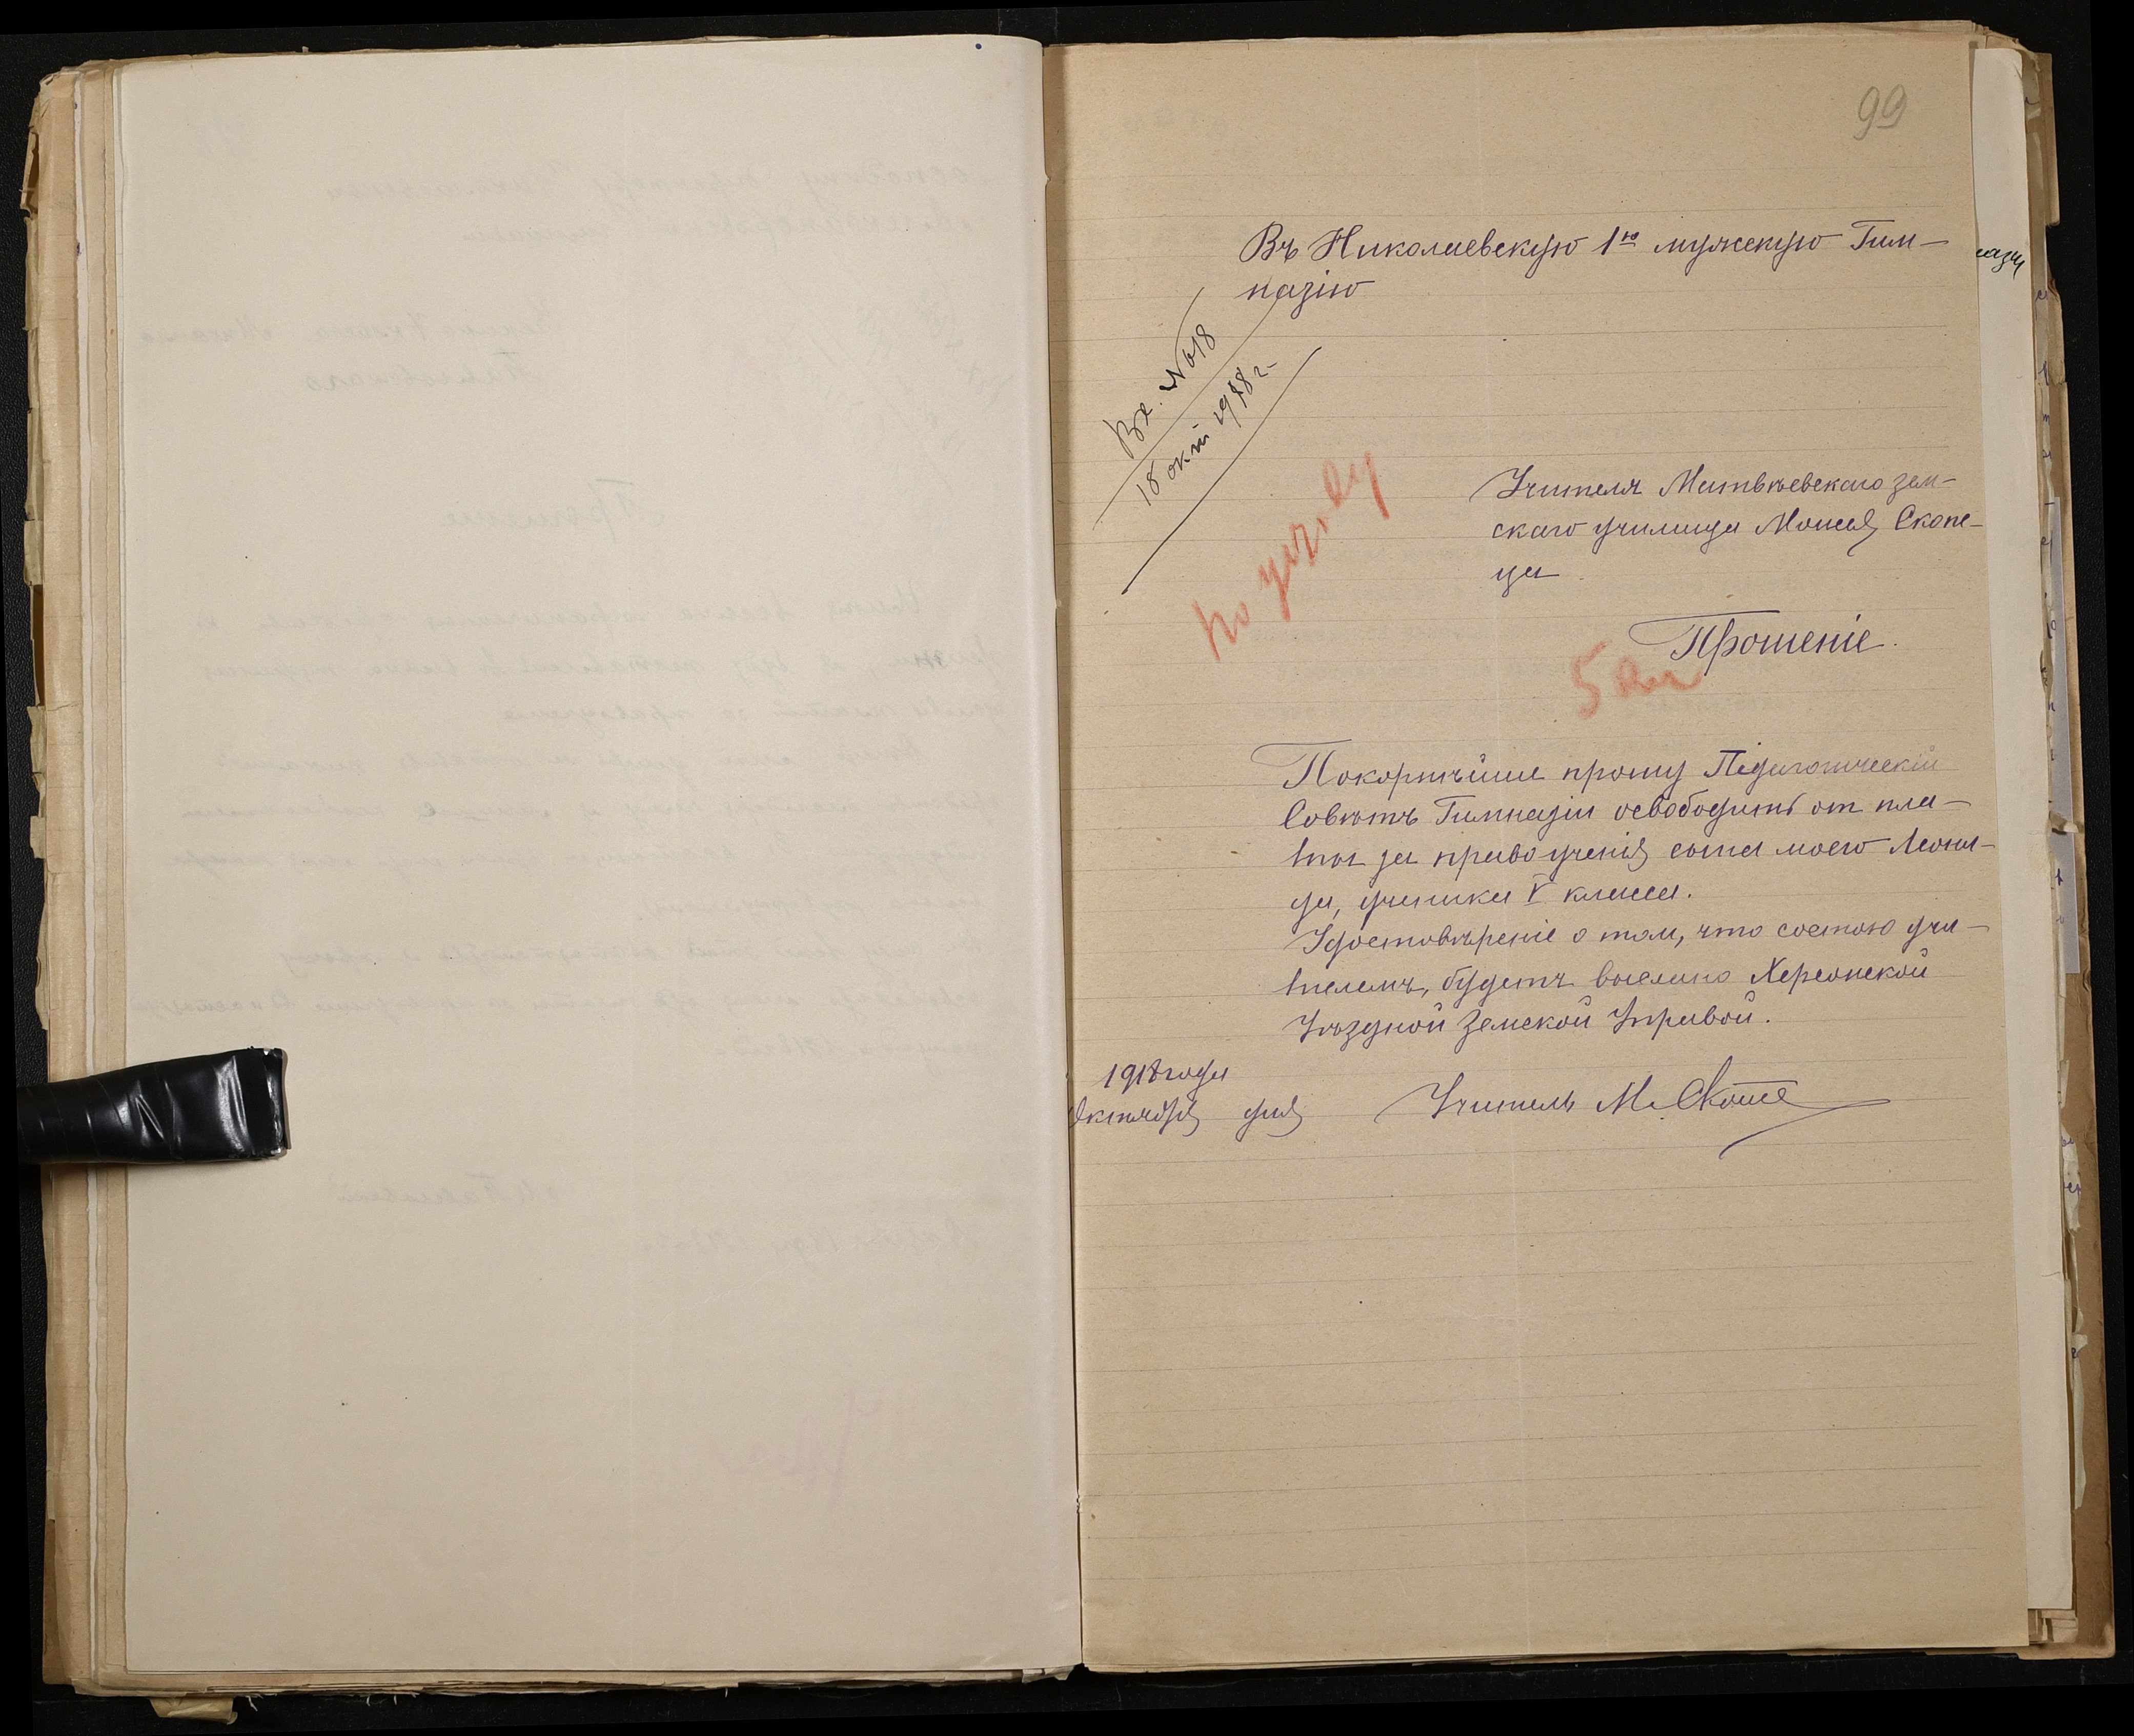 99
Въ Николаевскую 1ю мужскую Гим-
назію
Вх. № 618
18 окт 1918 г.
Учителя Матвѣевскаго зем-
скаго училища Моисея Скопе-
ца
Прошеніе.
Покорнѣйше прошу Педагогическій
Совѣтъ Гимназіи освободить от пла-
ты за право ученія сына моего Леони-
да, ученика V класса.
Удостовѣреніе о том, что состою учи-
телемъ, будетъ выслано Херсонской
Уѣздной Земской Управой.
1918 года
Октября дня
Учитель М. Скопе